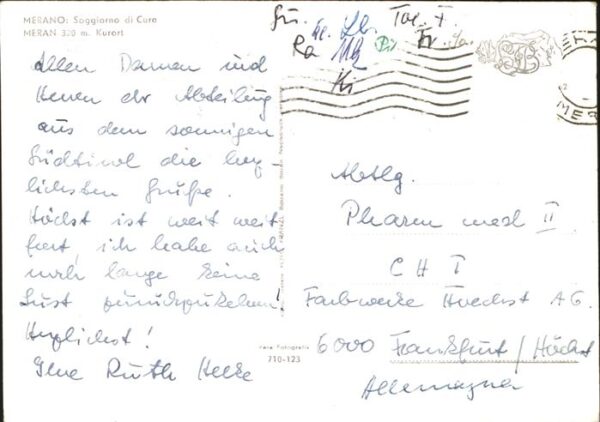 MERANO: Soggiorno di Cura
MERAN 320 m. Kurort
Allen Damen und
Herren der Abteilung
aus dem sonnigen
Südtirol die herz-
lichsten Grüße.
Höchst ist weit weit
fort, ich habe auch
noch lange keine
Lust zurückzukehren!
Herzlichst!
Ruth
Tae. F.
Fr.
Ra
Ki
Abtlg.
Pharm med II
CHT
Farbwerke Hoechst AG.
6000 Frankfurt/Höchst
Allemagna
Vera Fotografia
710-123